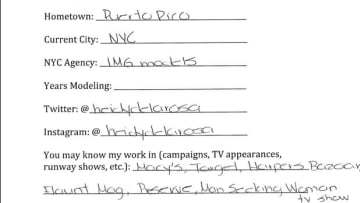 Hometown: Puerto Rico
Current City: NYC
NYC Agency: IMG models
Years Modeling:
Twitter: @heidydelarosa
Instagram: @heidydelarosa
You may know my work in (campaigns, TV appearances,
runway shows, etc.): Macy's, Target, Harpers Bazaar
Flaunt Mag, Reserve, Man Seeking Woman
tv show